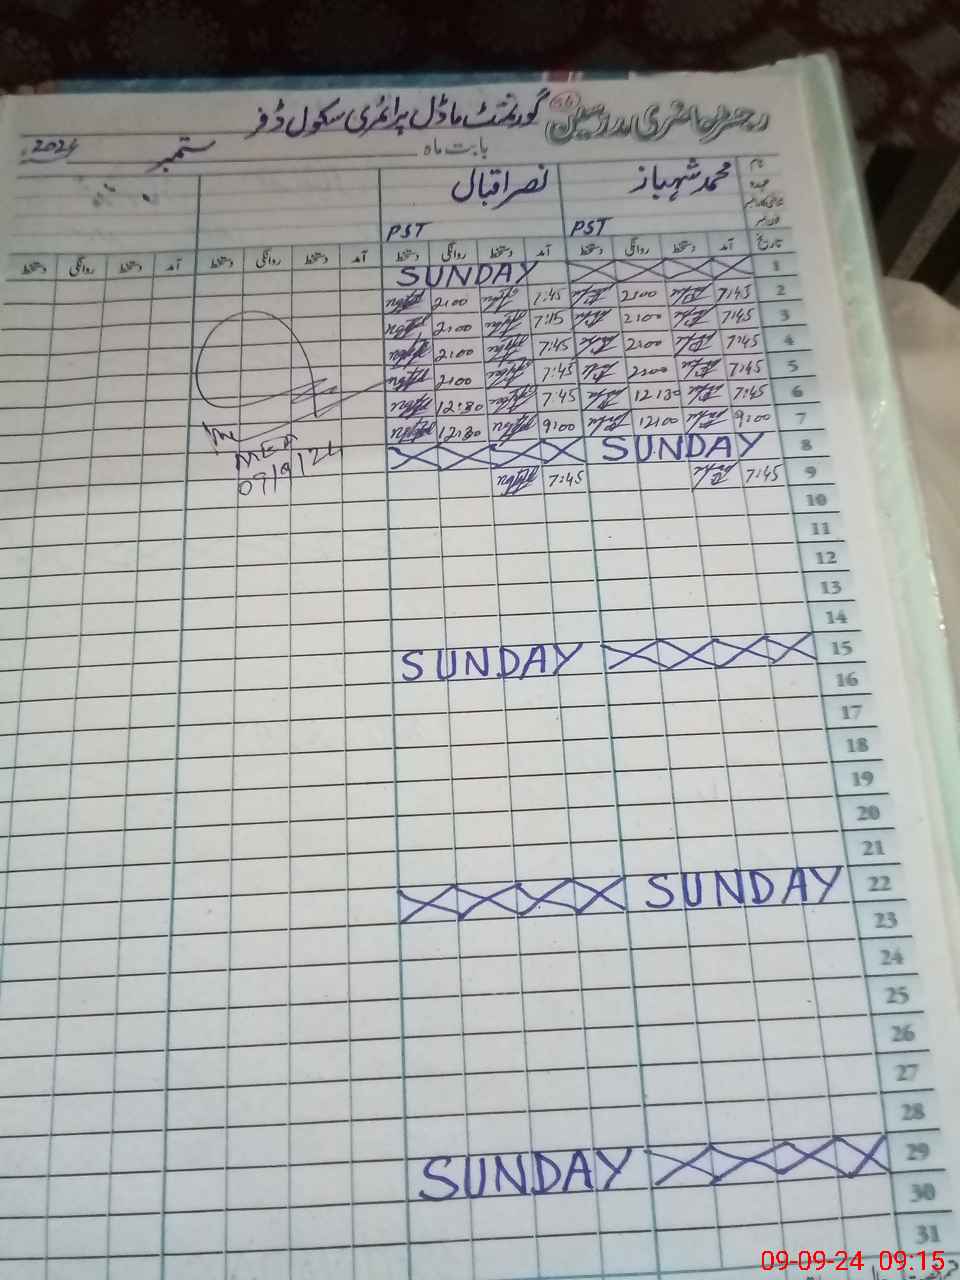 رجسٹر حاضری مدرسین 56 گورنمنٹ ماڈل پرائمری سکول ڈفر
بابت ماہ ستمبر 2024
نام محمد شہباز نصر اقبال
عہدہ
PST PST
تاریخ آمد دستخط روانگی دستخط آمد دستخط روانگی دستخط آمد دستخط روانگی دستخط آمد دستخط روانگی دستخط
1 SUNDAY
2 7:45 2:00 7:45 2:00
3 7:45 2:00 7:15 2:00
4 7:45 2:00 7:45 2:00
5 7:45 2:00 7:45 2:00
6 7:45 12:30 7:45 12:30
7 9:00 12:00 9:00 12:30
8 SUNDAY
9 7:45 7:45
MEA
09/9/24
10
11
12
13
14
15 SUNDAY
16
17
18
19
20
21
22 SUNDAY
23
24
25
26
27
28
29 SUNDAY
30
31
09-09-24 09:15